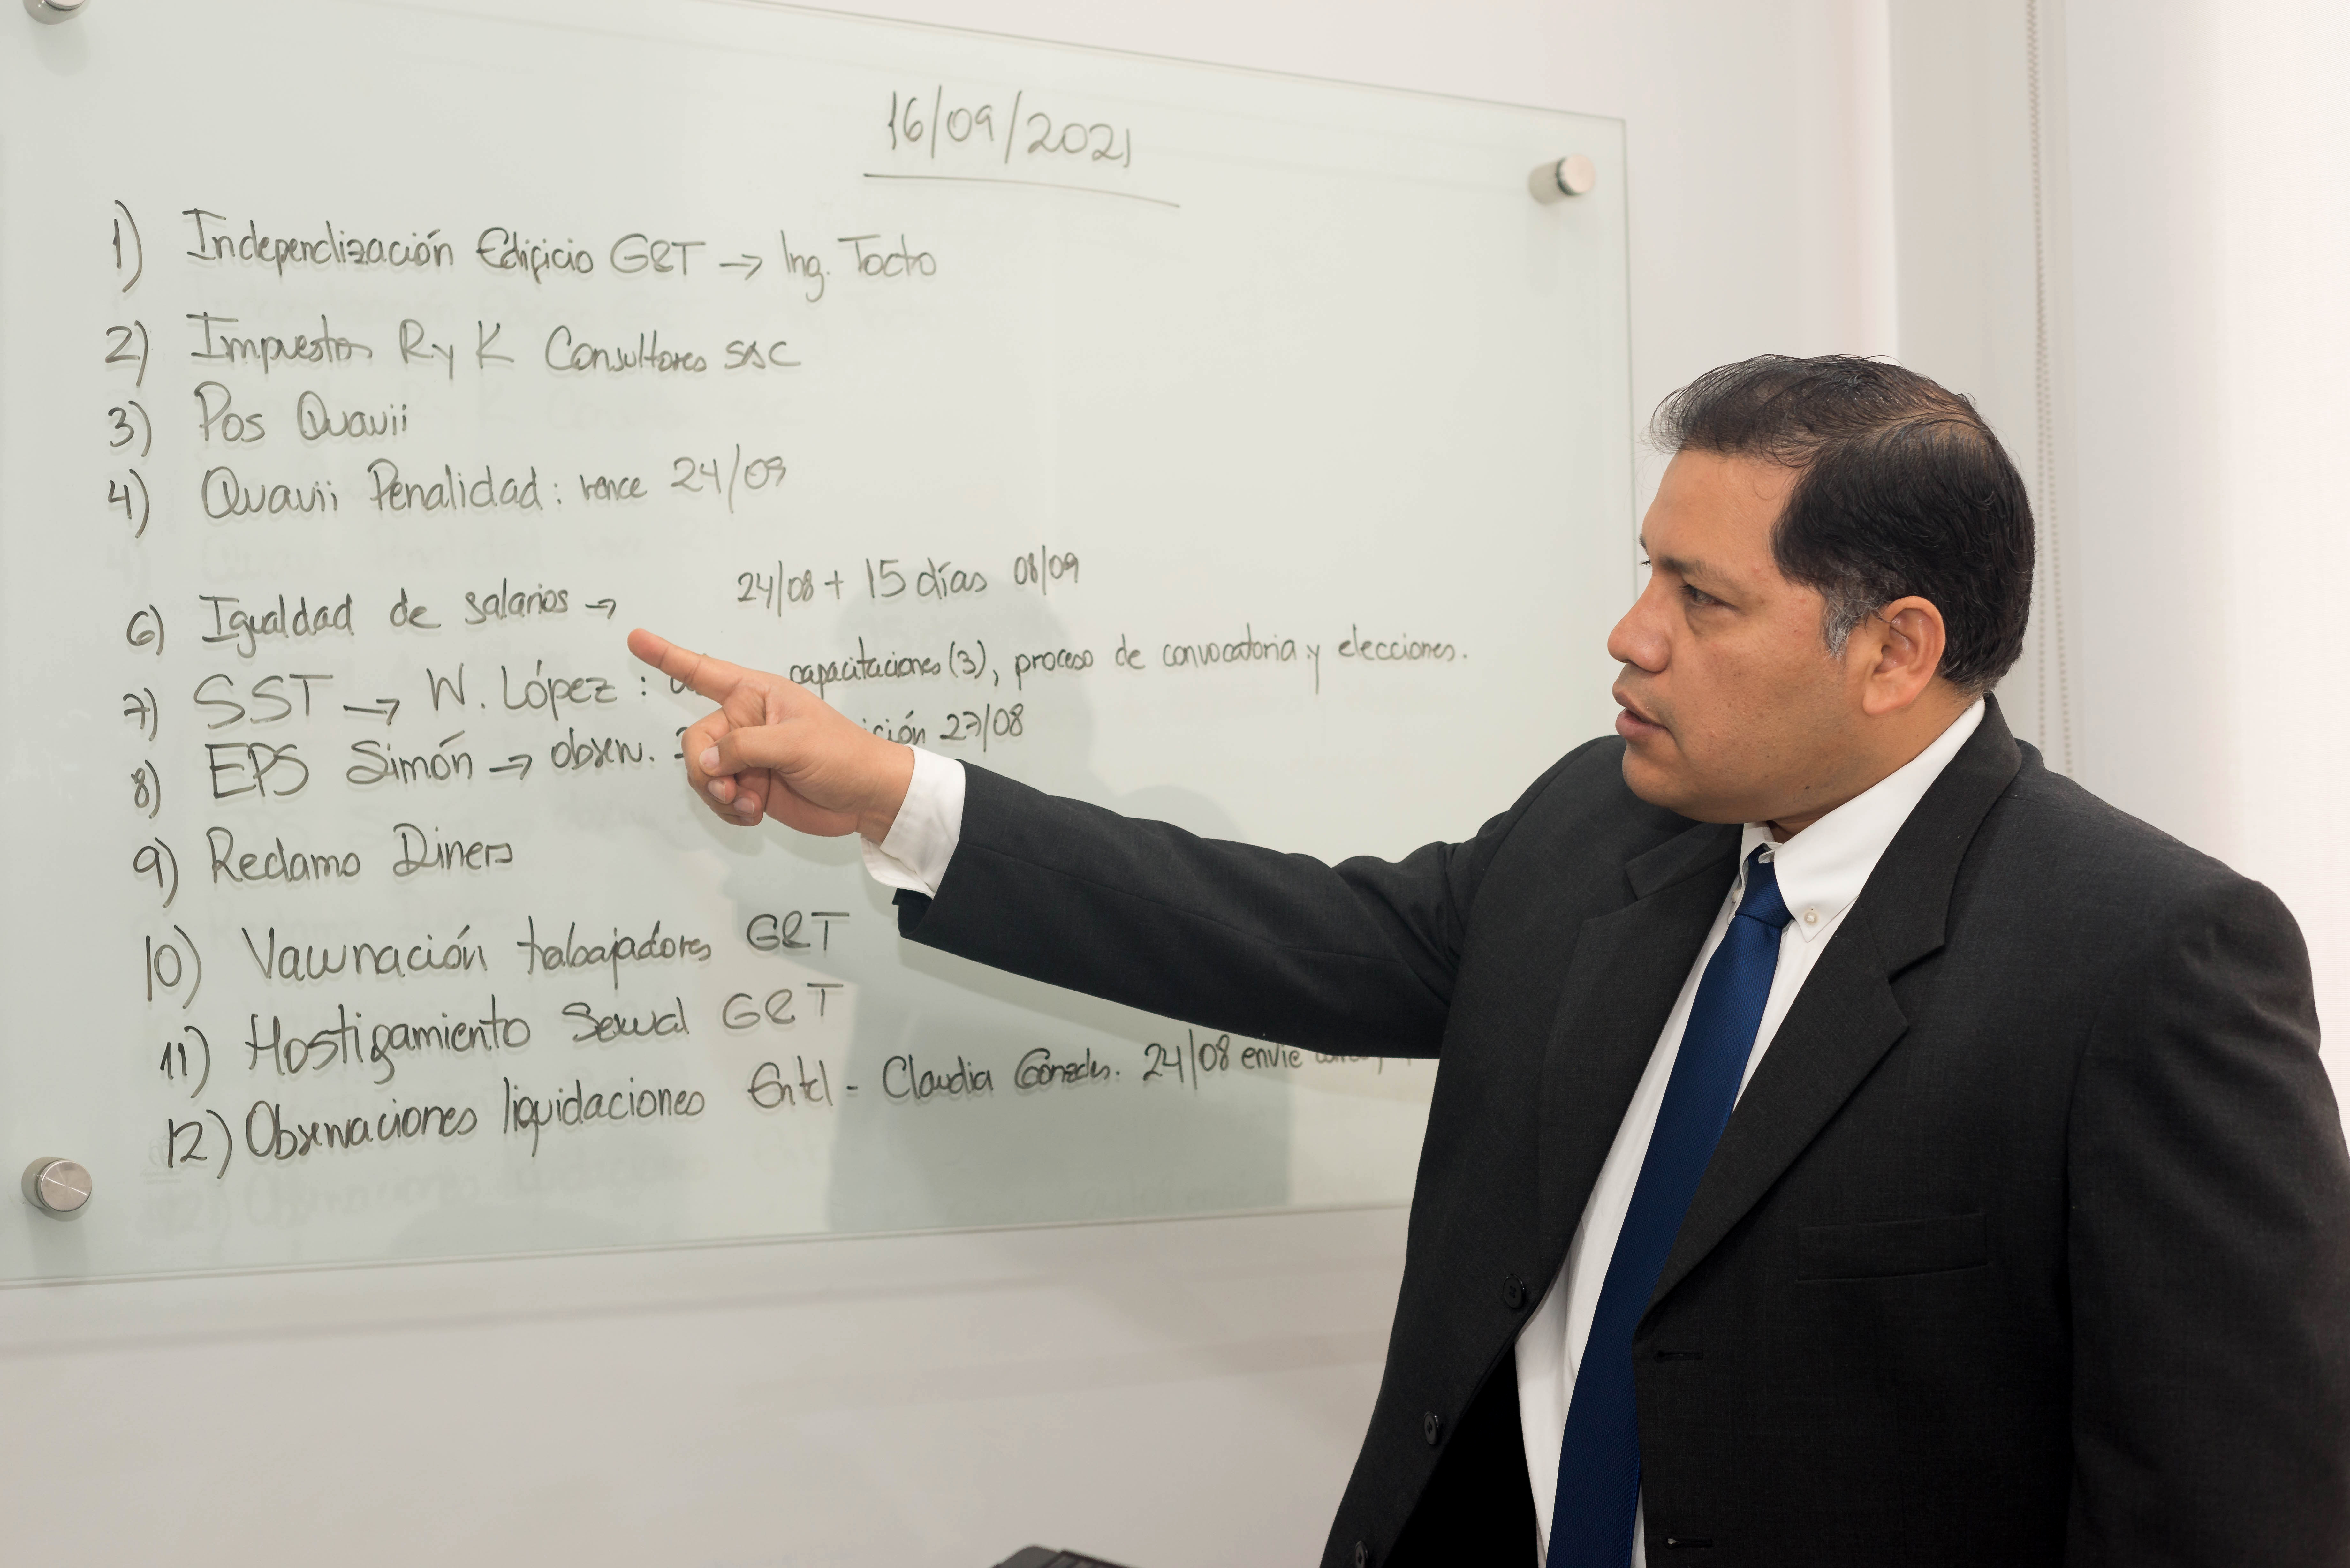 16/09/2021
1) Independización Edificio G&T → Ing. Tocto
2) Impuestos R y K Consultores SAC
3) Pos Quavii
4) Quavii Penalidad: vence 24/09
6) Igualdad de salarios → 24/08 + 15 días 08/09
7) SST → W. López: capacitaciones (3), proceso de convocatoria y elecciones.
8) EPS Simón → observ. 27/08
9) Reclamo Diners
10) Vacunación trabajadores G&T
11) Hostigamiento Sexual G&T
12) Observaciones liquidaciones Entel - Claudia 24/08 envie